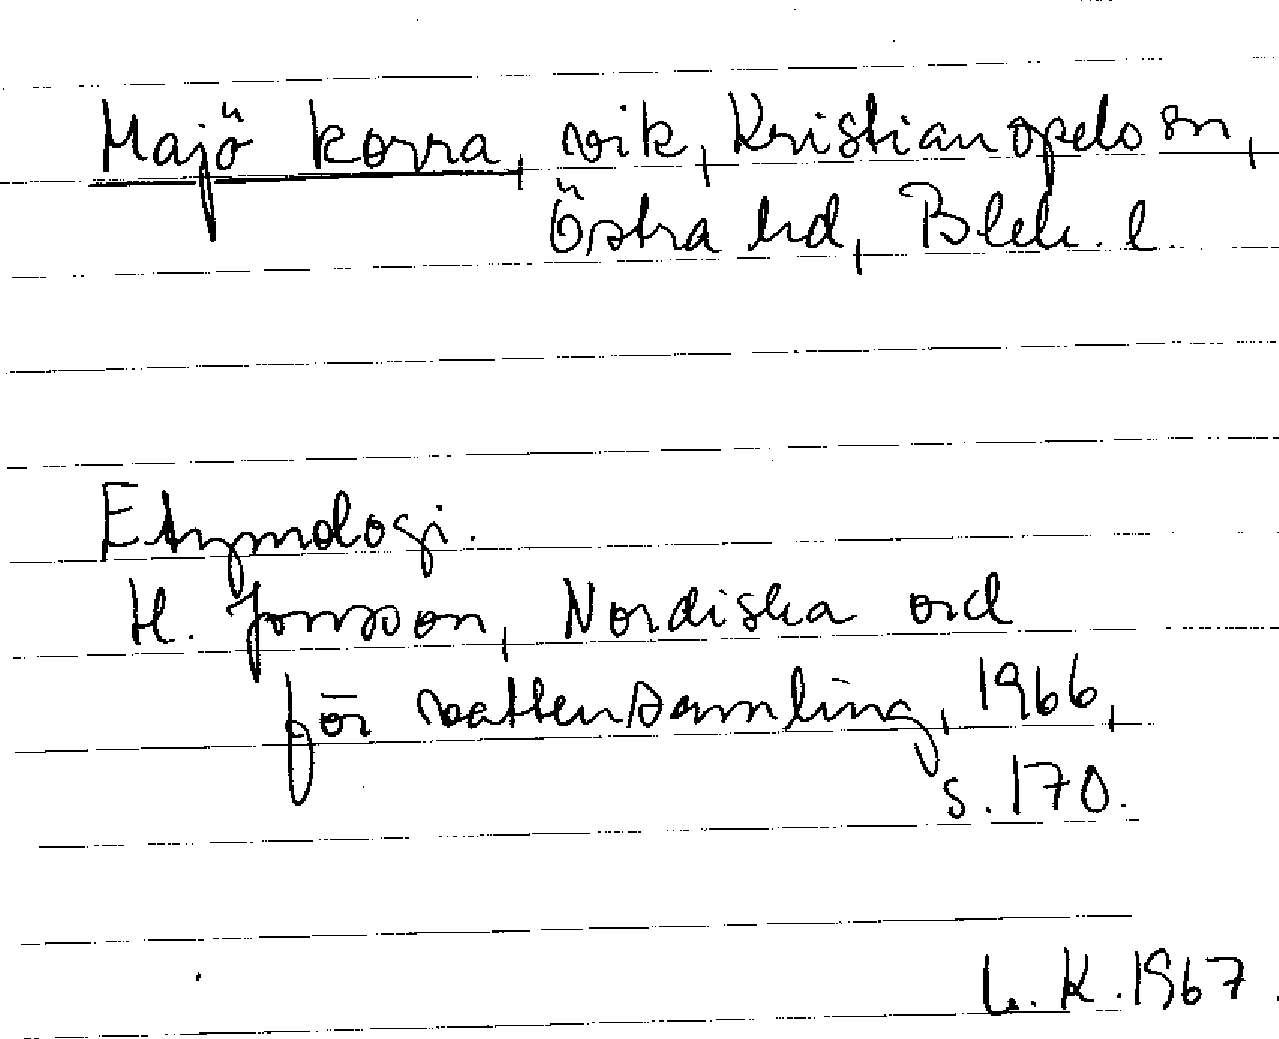 Majö korra, vik, Kristianopels sn,
Östra hd, Blek. l.
Etymologi.
H. Jonsson, Nordiska ord
för vattensamling, 1966,
s. 170.
L. K. 1967.